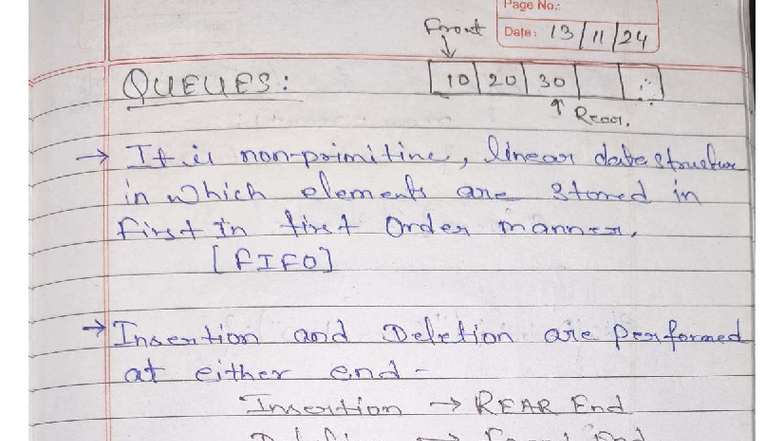 Page No.:
Front
Date: 13/11/24
QUEUES:
10 20 30
Rear.
→ It is non-primitive, linear data structure
in which elements are stored in
first in first Order manner.
[FIFO]
→ Insertion and Deletion are performed
at either end -
Insertion → REAR End